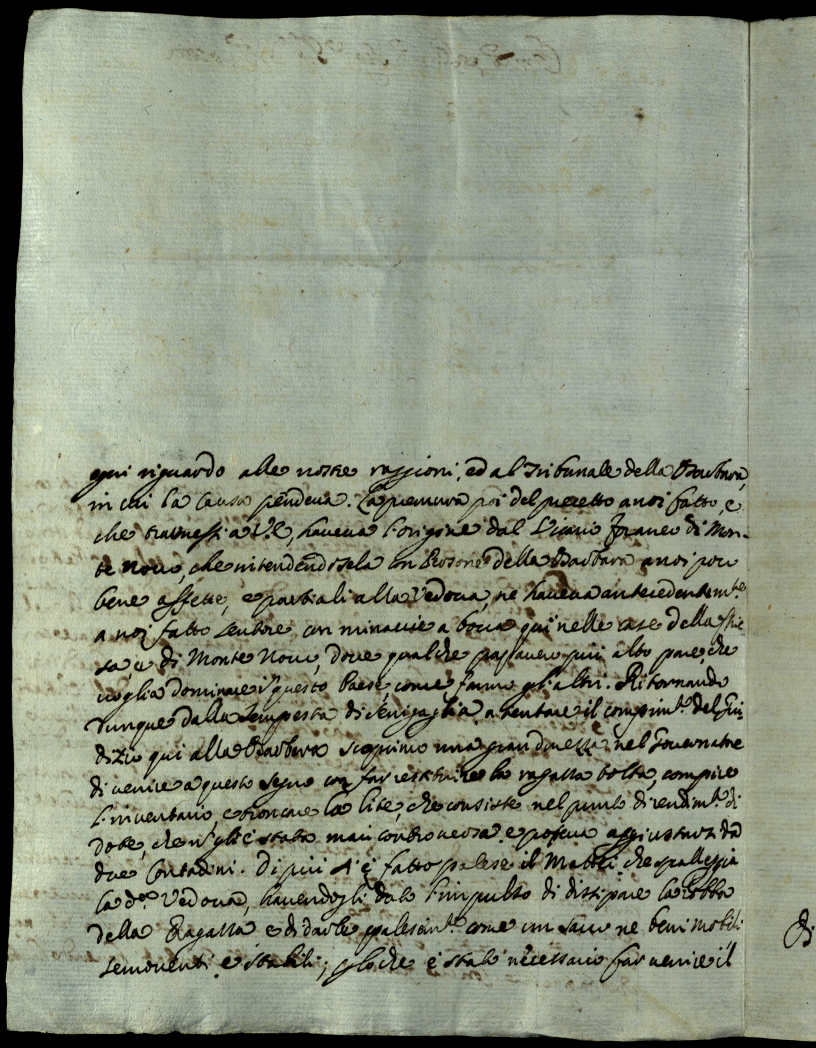 qui riguardo alle nostre raggioni, ed al Tribunale della Barbara,
in cui la causa pendeva. La premura poi del precetto a noi fatto, e
che trasmessi a V.S., haveva l'origine dal Vicario foraneo di Mon-
te Novo, che intendendosela con Persone della Barbara a noi poco
bene affette, e partiali alla Vedova, ne haveva antecedentem.te
a noi fatto sentire con minaccie a bocca qui nelle case della
sa, e di Monte Novo, dove qualche passavero più alto pare, che
voglia dominare questo Paese, come fanno gl'altri. Ritornando
dunque dalla tempesta di Senigaglia a tentare il compim.to del Giu
dizio qui alla Barbara scoprimo una gran durezza nel Governatore
di venire a questo segno con far restituire la ragazza tolta, compire
l'inventario, e troncare la lite, che consiste nel punto di rendim.to di
dote, che è stata mai controversa e poteva aggiustarsi da
due Contadini. Di più s'è fatto palese il che spalleggia
la d.a Vedova, havendogli dato l'impulso di dissipare la robba
della Ragazza e di darle palesam.te come un sacco ne beni mobili
semoventi e stabili; che è stato necessario far venire il
di